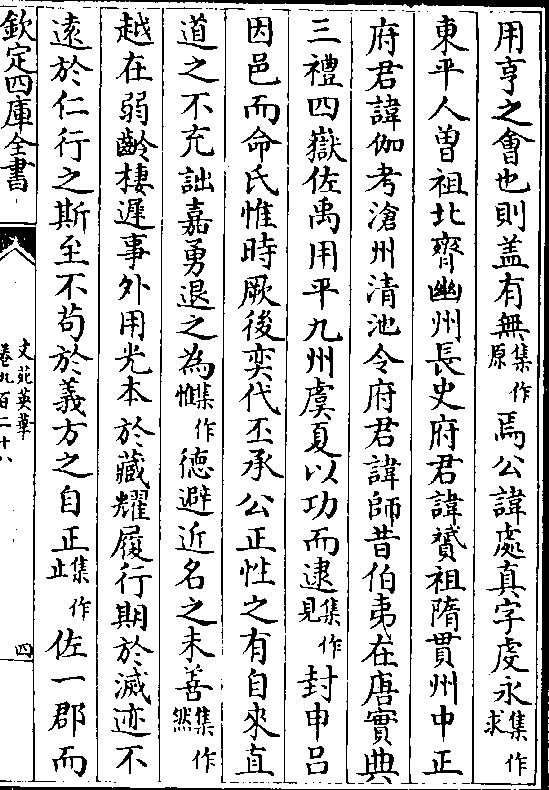 用亨之會也則盖有無集作原焉公諱處真字虔永集作求
東平人曾祖北齊幽州長史府君諱贇祖隋貫州中正
府君諱伽考滄州清池令府君諱師昔伯夷在唐實典
三禮四嶽佐禹用平九州虞夏以功而逮集作見封申吕
因邑而命氏惟時厥後奕代丕承公正性之有自來直
道之不充詘嘉勇退之為集作惟德避近名之未善集作然
越在弱齡棲遲事外用光本於藏耀履行期於滅迹不
遠於仁行之斯至不苟於義方之自正集作止佐一郡而
欽定四庫全書
文苑英華
卷九百二十八
四